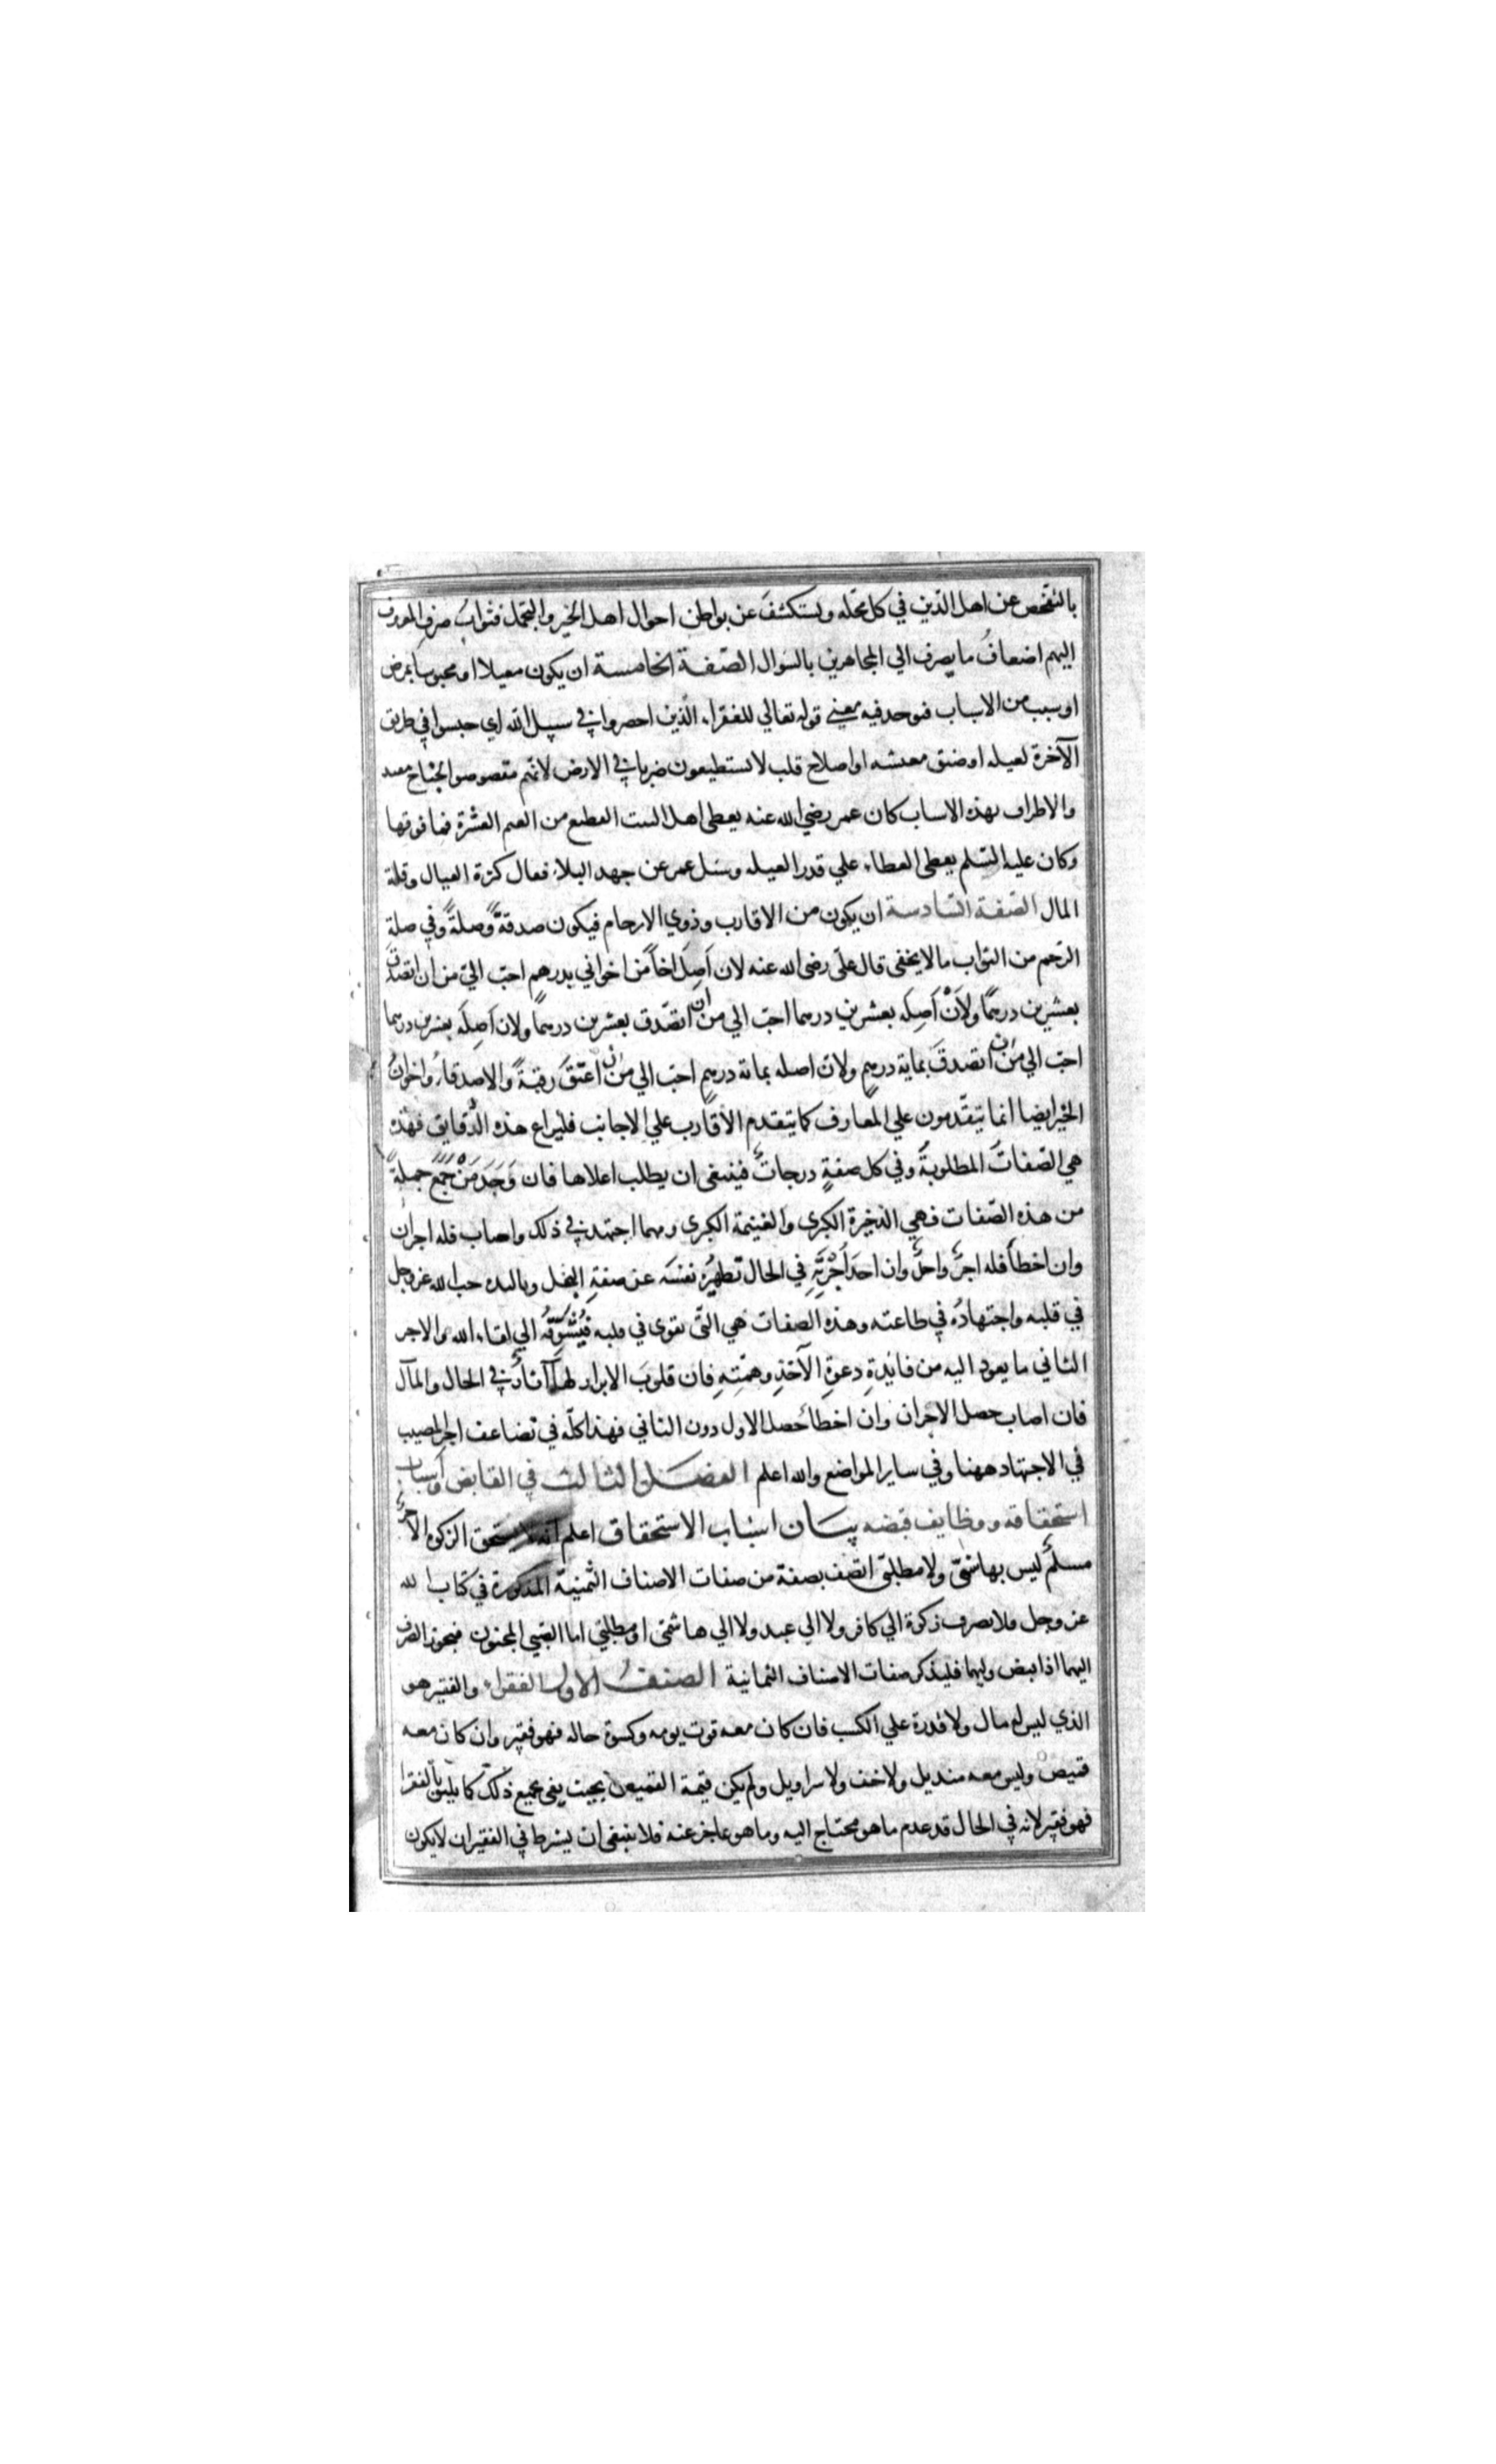 بالتفحص عن اهل الدين في كل محله ويستكشف عن بواطن احوال اهل الخير والتجمل فثواب صرف المعروف
اليهم اضعاف ما يصرف الي المجاهرين بالسوال الصفة الخامسة ان يكون معيلا او محبوسا بمرض
او سبب من الاسباب فيوجد فيه معني قوله تعالي للفقراء الذين احصروا في سبيل الله اي حبسوا في طريق
الآخرة لعيله او ضيق معيشه او اصلاح قلب لا يستطيعون ضربا في الارض لانهم مقصوصوا الجناح مقيد
والاطراف بهذه الاسباب كان عمر رضي الله عنه يعطى اهل البيت القطيع من الغنم العشرة فما فوقها
وكان عليه السلم يعطى العطاء علي قدر العيله وسئل عمر عن جهد البلاء فقال كثرة العيال وقلة
المال الصفة السادسة ان يكون من الاقارب وذوي الارحام فيكون صدقةً وصلةً وفي صلة
الرحم من الثواب ما لا يخفى قال علي رضى الله عنه لان اَصِلَ اخاً من اخواني بدرهم احب الي من ان اتصدق
بعشرين درهمًا ولاَنْ اَصِلَه بعشرين درهما احب الي من ان اتصدق بعشرين درهمًا ولان اَصِلَه بعشرين درهما
احب الي من ان اتصدقَ بماية درهمٍ ولان اصله بماية درهمٍ احب الي من ان اعتقَ رقبةً والاصدقاءُ واخوانُ
الخير ايضا انما يتقدمون علي المعارف كما يتقدم الاقارب علي الاجانب فليراع هذه الدقايق فهذه
هي الصفات المطلوبة وفي كل صفةٍ درجاتٌ فينبغى ان يطلب اعلاها فان وَجَدَ مَنْ جَمَعَ جملةً
من هذه الصفات فهي الذخيرة الكبرى والغنيمة الكبرى ومهما اجتهد في ذلك واصاب فله اجران
وان اخطأ فله اجرٌ واحدٌ وان احدَ اَجْرَيْهِ في الحال تطهيرُه نفسَه عن صفةِ البخل وتاكيده حب الله عز وجل
في قلبه واجتهادُه في طاعته وهذه الصفات هي التي تقوى في قلبه فيُشَوِّقُه الي لقاء الله والاجر
الثاني ما يعود اليه من فائدةِ دعوةِ الآخذِ وهمّتِهِ فان قلوبَ الابرار لها آثارٌ في الحال والمآل
فان اصاب حصل الاجران وان اخطأ حصل الاول دون الثاني فهذا كله في تضاعف اجر المصيب
في الاجتهاد ههنا وفي ساير المواضع والله اعلم الفصل الثالث في القابض واسباب
استحقاقه ووظايف قبضه بيان اسباب الاستحقاق اعلم انه لا يستحق الزكوة الا حرٌّ
مسلمٌ ليس بهاشمي ولا مطلبي اتصف بصفة من صفات الاصناف الثمنية المذكورة في كتاب الله
عز وجل فلا يصرف زكوة الي كافر ولا الي عبد ولا الي هاشمي او مطلبي اما الصبي المجنون فيجوز الصرف
اليهما اذا قبض وليهما فليذكر صفات الاصناف الثمانية الصنفُ الاول الفقراء والفقير هو
الذي ليس له مال ولا قدرة علي الكسب فان كان معه قوت يومه وكسوة حاله فهو فقير وان كان معه
قميص وليس معه منديل ولا خف ولا سراويل ولم يكن قيمة القميص بحيث يفى بجميع ذلك كما يليق بالفقرا
فهو فقير لانه في الحال قد عدم ما هو محتاج اليه وما هو عاجز عنه فلا ينبغى ان يشرط في الفقير ان لا يكون